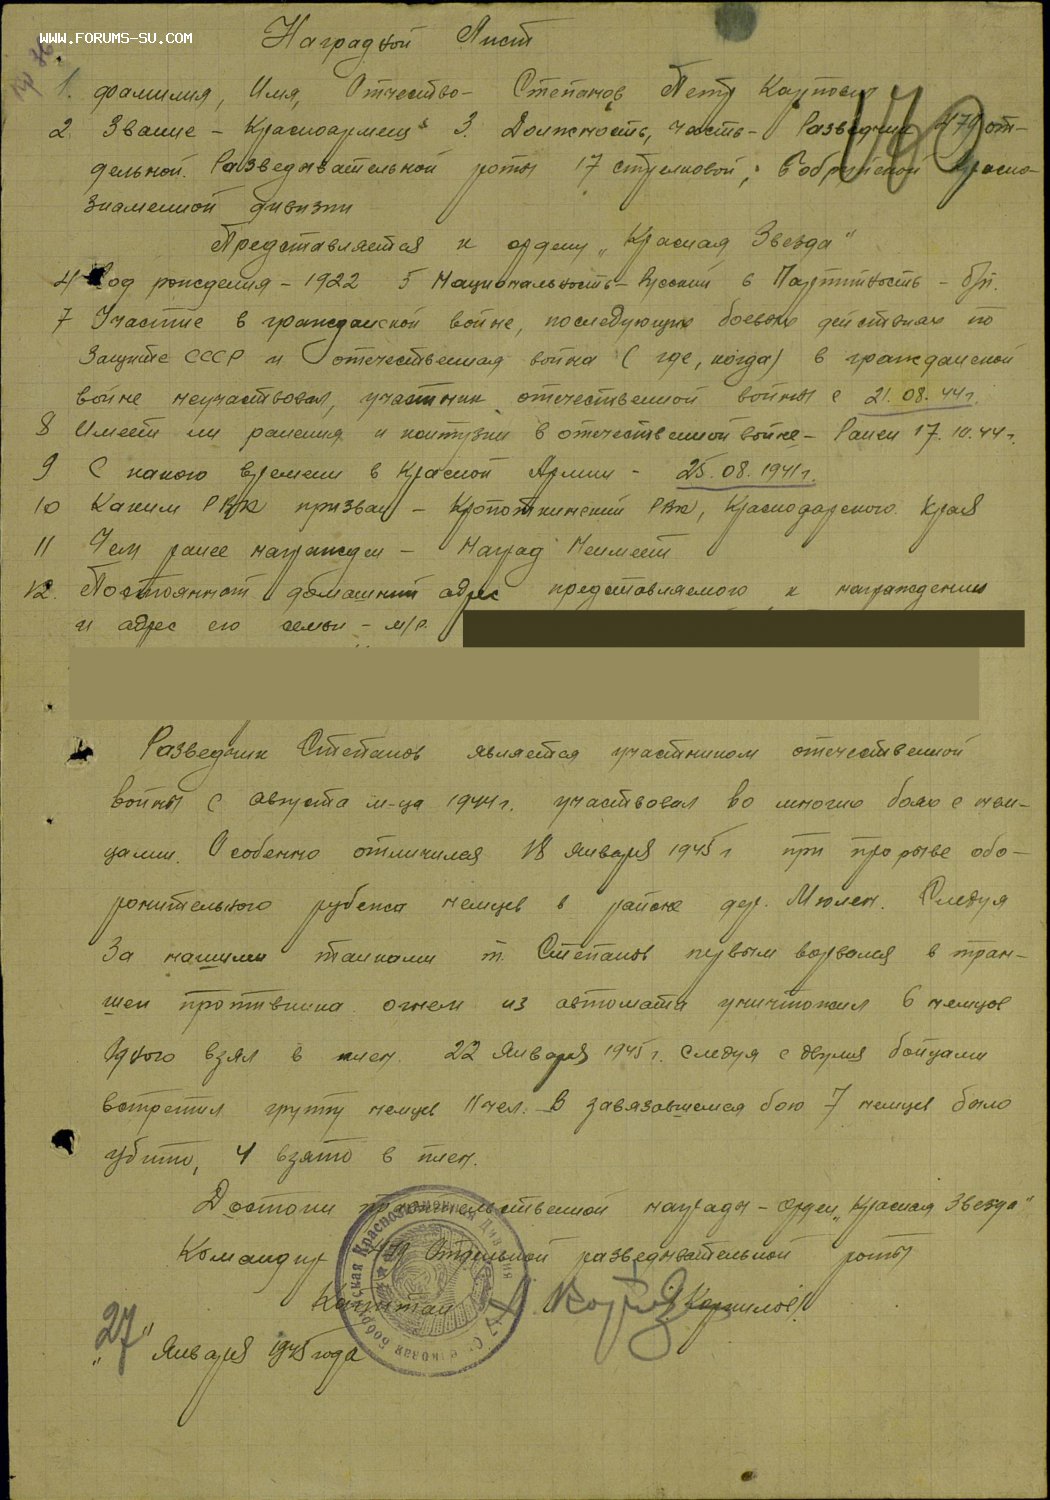 WWW.FORUMS-SU.COM
Наградной Лист
1. Фамилия, Имя, Отчество – Степанов Петр Карпович
2. Звание – Красноармеец 3. Должность, часть – Разведчик 479 от-
дельной Разведывательной роты 17 стрелковой, Бобруйской Красно-
знаменной дивизии
Представляется к ордену „Красная Звезда"
4 Год рождения – 1922 5 Национальность – Русский 6 Партийность – б/п.
7 Участие в гражданской войне, последующих боевых действиях по
защите СССР и отечественная война (где, когда) в гражданской
войне неучаствовал, участник отечественной войны с 21.08.44 г.
8 Имеет ли ранения и контузии в отечественной войне – Ранен 17.10.44 г.
9 С какого времени в Красной Армии – 25.08.1941 г.
10 Каким РВК призван – Кропоткинский РВК, Краснодарского Края
11 Чем ранее награжден – Наград Неимеет
12. Постоянный домашний адрес представляемого к награждению
и адрес его семьи – м/р.
Разведчик Степанов является участником отечественной
войны с августа м-ца 1944 г. участвовал во многих боях с нем-
цами. Особенно отличился 18 января 1945 г при прорыве обо-
ронительного рубежа немцев в районе дер. Мюлен. Следуя
за нашими танками т. Степанов первым ворвался в тран-
шеи противника огнем из автомата уничтожил 6 немцев
Одного взял в плен. 22 Января 1945 г. следуя с двумя бойцами
встретил группу немцев 11 чел. В завязавшемся бою 7 немцев было
убито, 4 взято в плен.
Достоин правительственной награды – орден „Красная Звезда"
Командир 479 Отдельной разведывательной роты
Капитан
„27" Января 1945 года